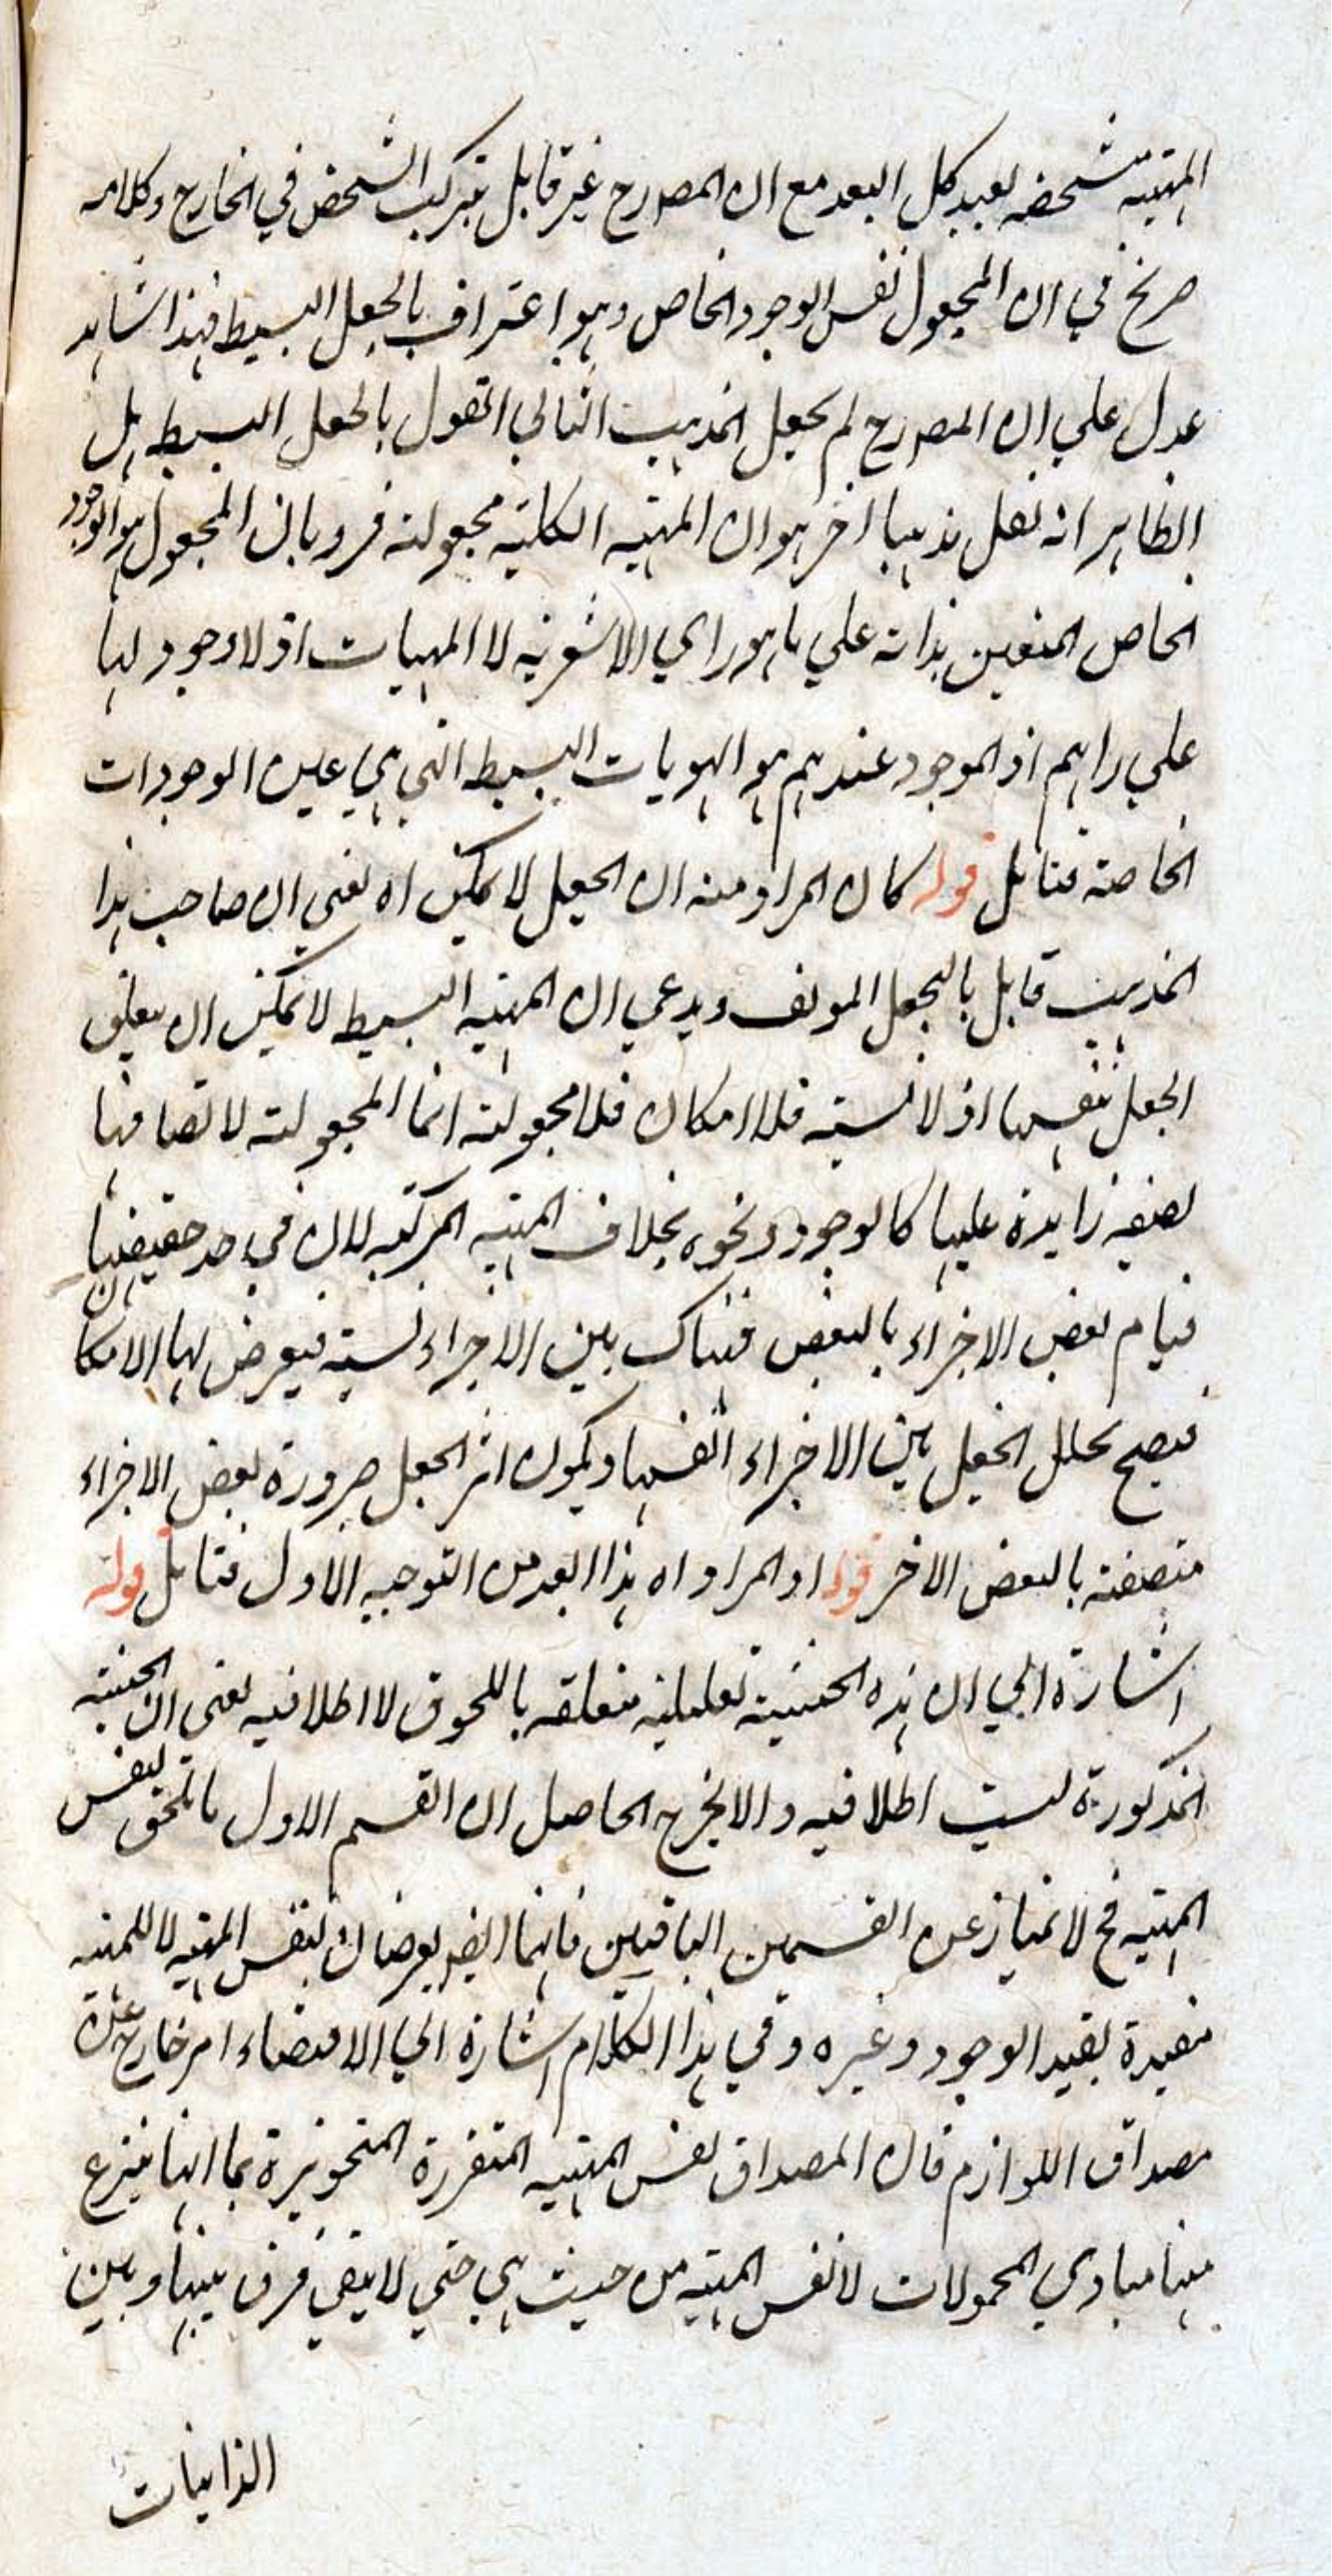 المهية مشخصه بعيد كل البعد مع ان المصرح غير قابل بتركب الشخص في الخارج وكلامه
صريح في ان المجعول نفس الوجود الخاص وهو اعتراف بالجعل البسيط فهذا شاهد
عدل علي ان المصرح لم يجعل المذهب الثاني القول بالجعل البسيط بل
الظاهر انه نقل مذهبا اخر هو ان المهية الكلية مجعولة فرد بان المجعول هو الوجود
الخاص المتعين بذاته علي ما هو راي الاشعرية لا المهيات اذ لا وجود لها
علي رايهم اذ الموجود عندهم هو الهويات البسيط التي هي عين الوجودات
الخاصة فتامل قوله كان المراد منه ان الجعل لا يمكن اه يعني ان صاحب هذا
المذهب قابل بالجعل المولف ويدعي ان المهية البسيط لا يمكن ان يتعلق
الجعل بنفسها اذ لا نسبة فلا امكان فلا مجعولية انما المجعولية لاتصافها
بصفة زايدة عليها كالوجود ونحوه بخلاف المهية المركبه لان في حد حقيقتها
قيام بعض الاجزاء بالبعض فهناك بين الاجزاء نسبة فيعرض لها الامكان
فيصح تخلل الجعل بين الاجزاء انفسها ويكون اثر الجعل صرورة بعض الاجزاء
متصفة بالبعض الاخر قوله او المراد اه هذا ابعد من التوجيه الاول فتامل قوله
اشارة الي ان هذه الحيثية تعليلية متعلقه باللحوق لا اطلاقيه يعني ان الحيثية
المذكورة ليست اطلاقيه والا يخرج الحاصل ان القسم الاول ما يلحق لنفس
المهية فح لا تمياز عن القسمين الباقيين فانهما ايضا يعرضان لنفس المهية لا للمهية
مقيدة بقيد الوجود وغيره وفي هذا الكلام اشارة الي الاقتضاء امر خارج عن
مصداق اللوازم فان المصداق نفس المهية المتقررة المتجوهرة بما انها ينزع
منها مبادي المحمولات لا نفس المهية من حيث هي حتي لا يبقي فرق بينها وبين
الذاتيات